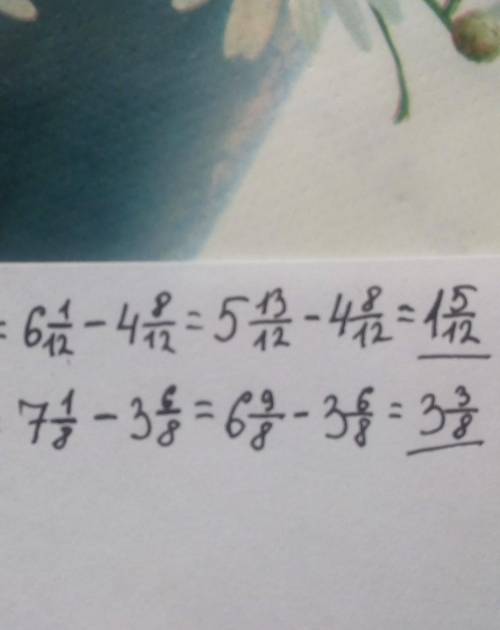 = 6 1/12 - 4 8/12 = 5 13/12 - 4 8/12 = 1 5/12
7 1/8 - 3 6/8 = 6 9/8 - 3 6/8 = 3 3/8